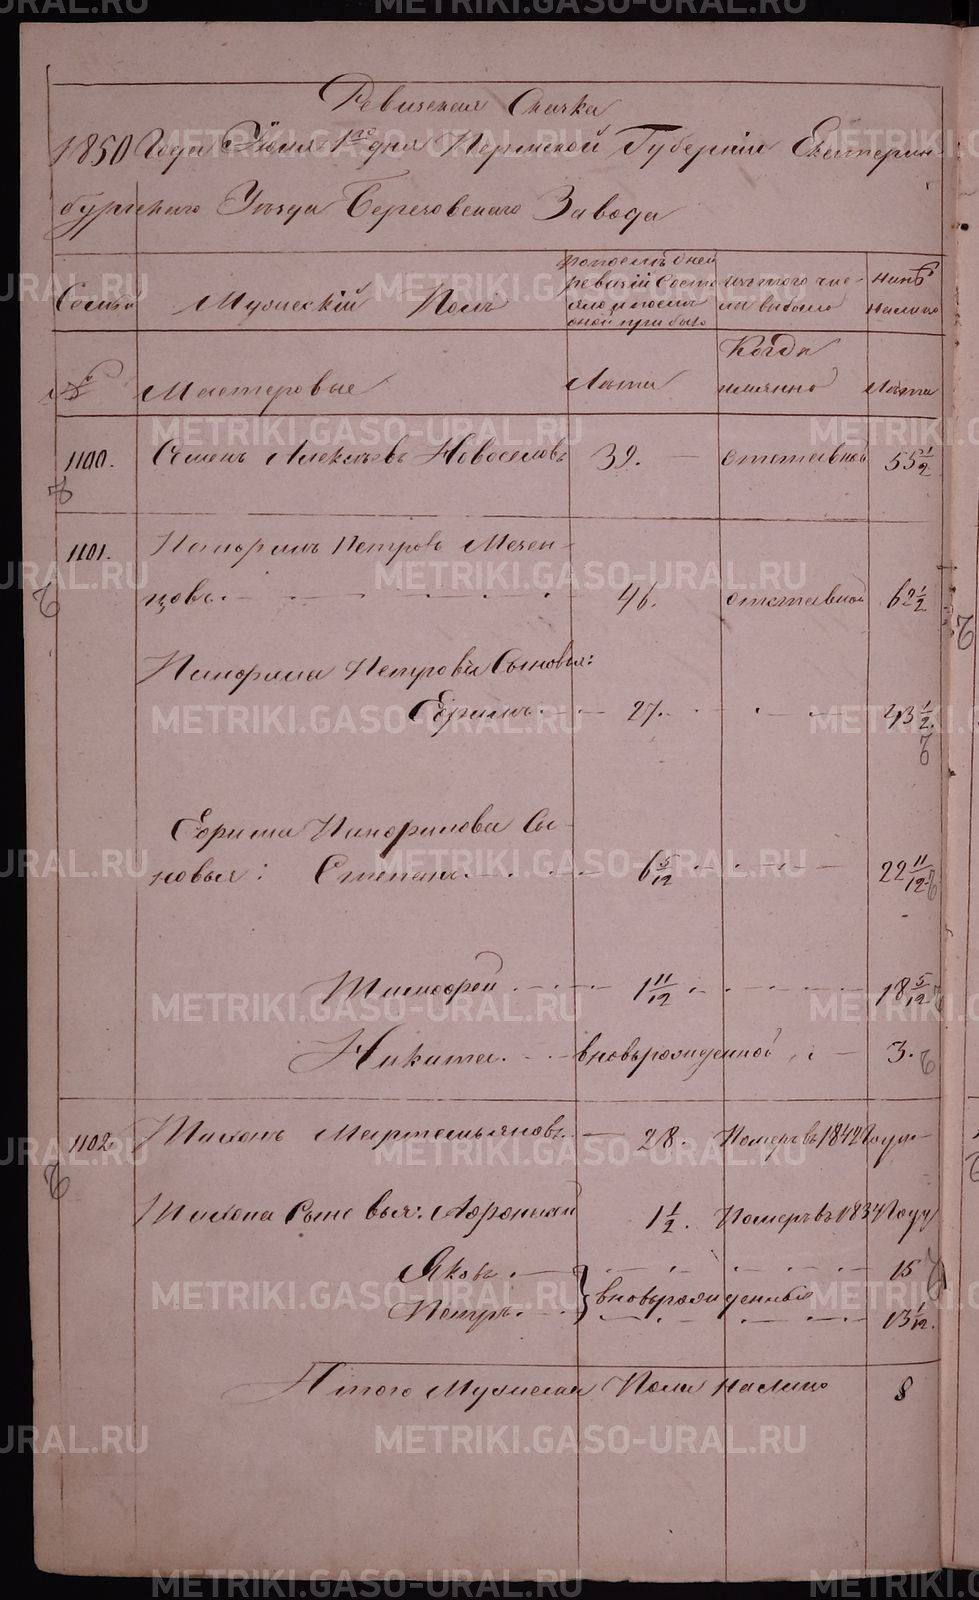 Ревизская Сказка
1850 Года Июля 1го дня Пермской Губернии Екатерин-
бургскаго Уезда Березовскаго Завода
Семьи Мужескій Полъ
ревизіи состо
яло и после
оной прибыло
изъ того чис-
ла выбыло
Ныне
налицо
№ Мастеровые Лета Когда
именно Лета
1100. Семенъ Алексеевъ Новоселовъ 39. отставной 55 1/2
1101. Памфилъ Петровъ Мехен-
цовъ 46. отставной 62 1/2
Памфила Петрова Сыновья:
Ефимъ 27. 43 1/2.
Ефима Панфилова Сы-
новья: Степанъ 6 5/12 22 11/12
Тимофей 1 11/12 18 5/12
Никита вновьрожденной 3.
1102. Тихонъ Мартемьяновъ 28. Померъ въ 1842 Году
Тихона Сыновья: Афонасій 1 1/2. Померъ въ 1834 Году
Яковъ 15
вновьрожденныя
Петръ 13 1/12.
Итого Мужеска Пола налицо 8
METRIKI.GASO-URAL.RU